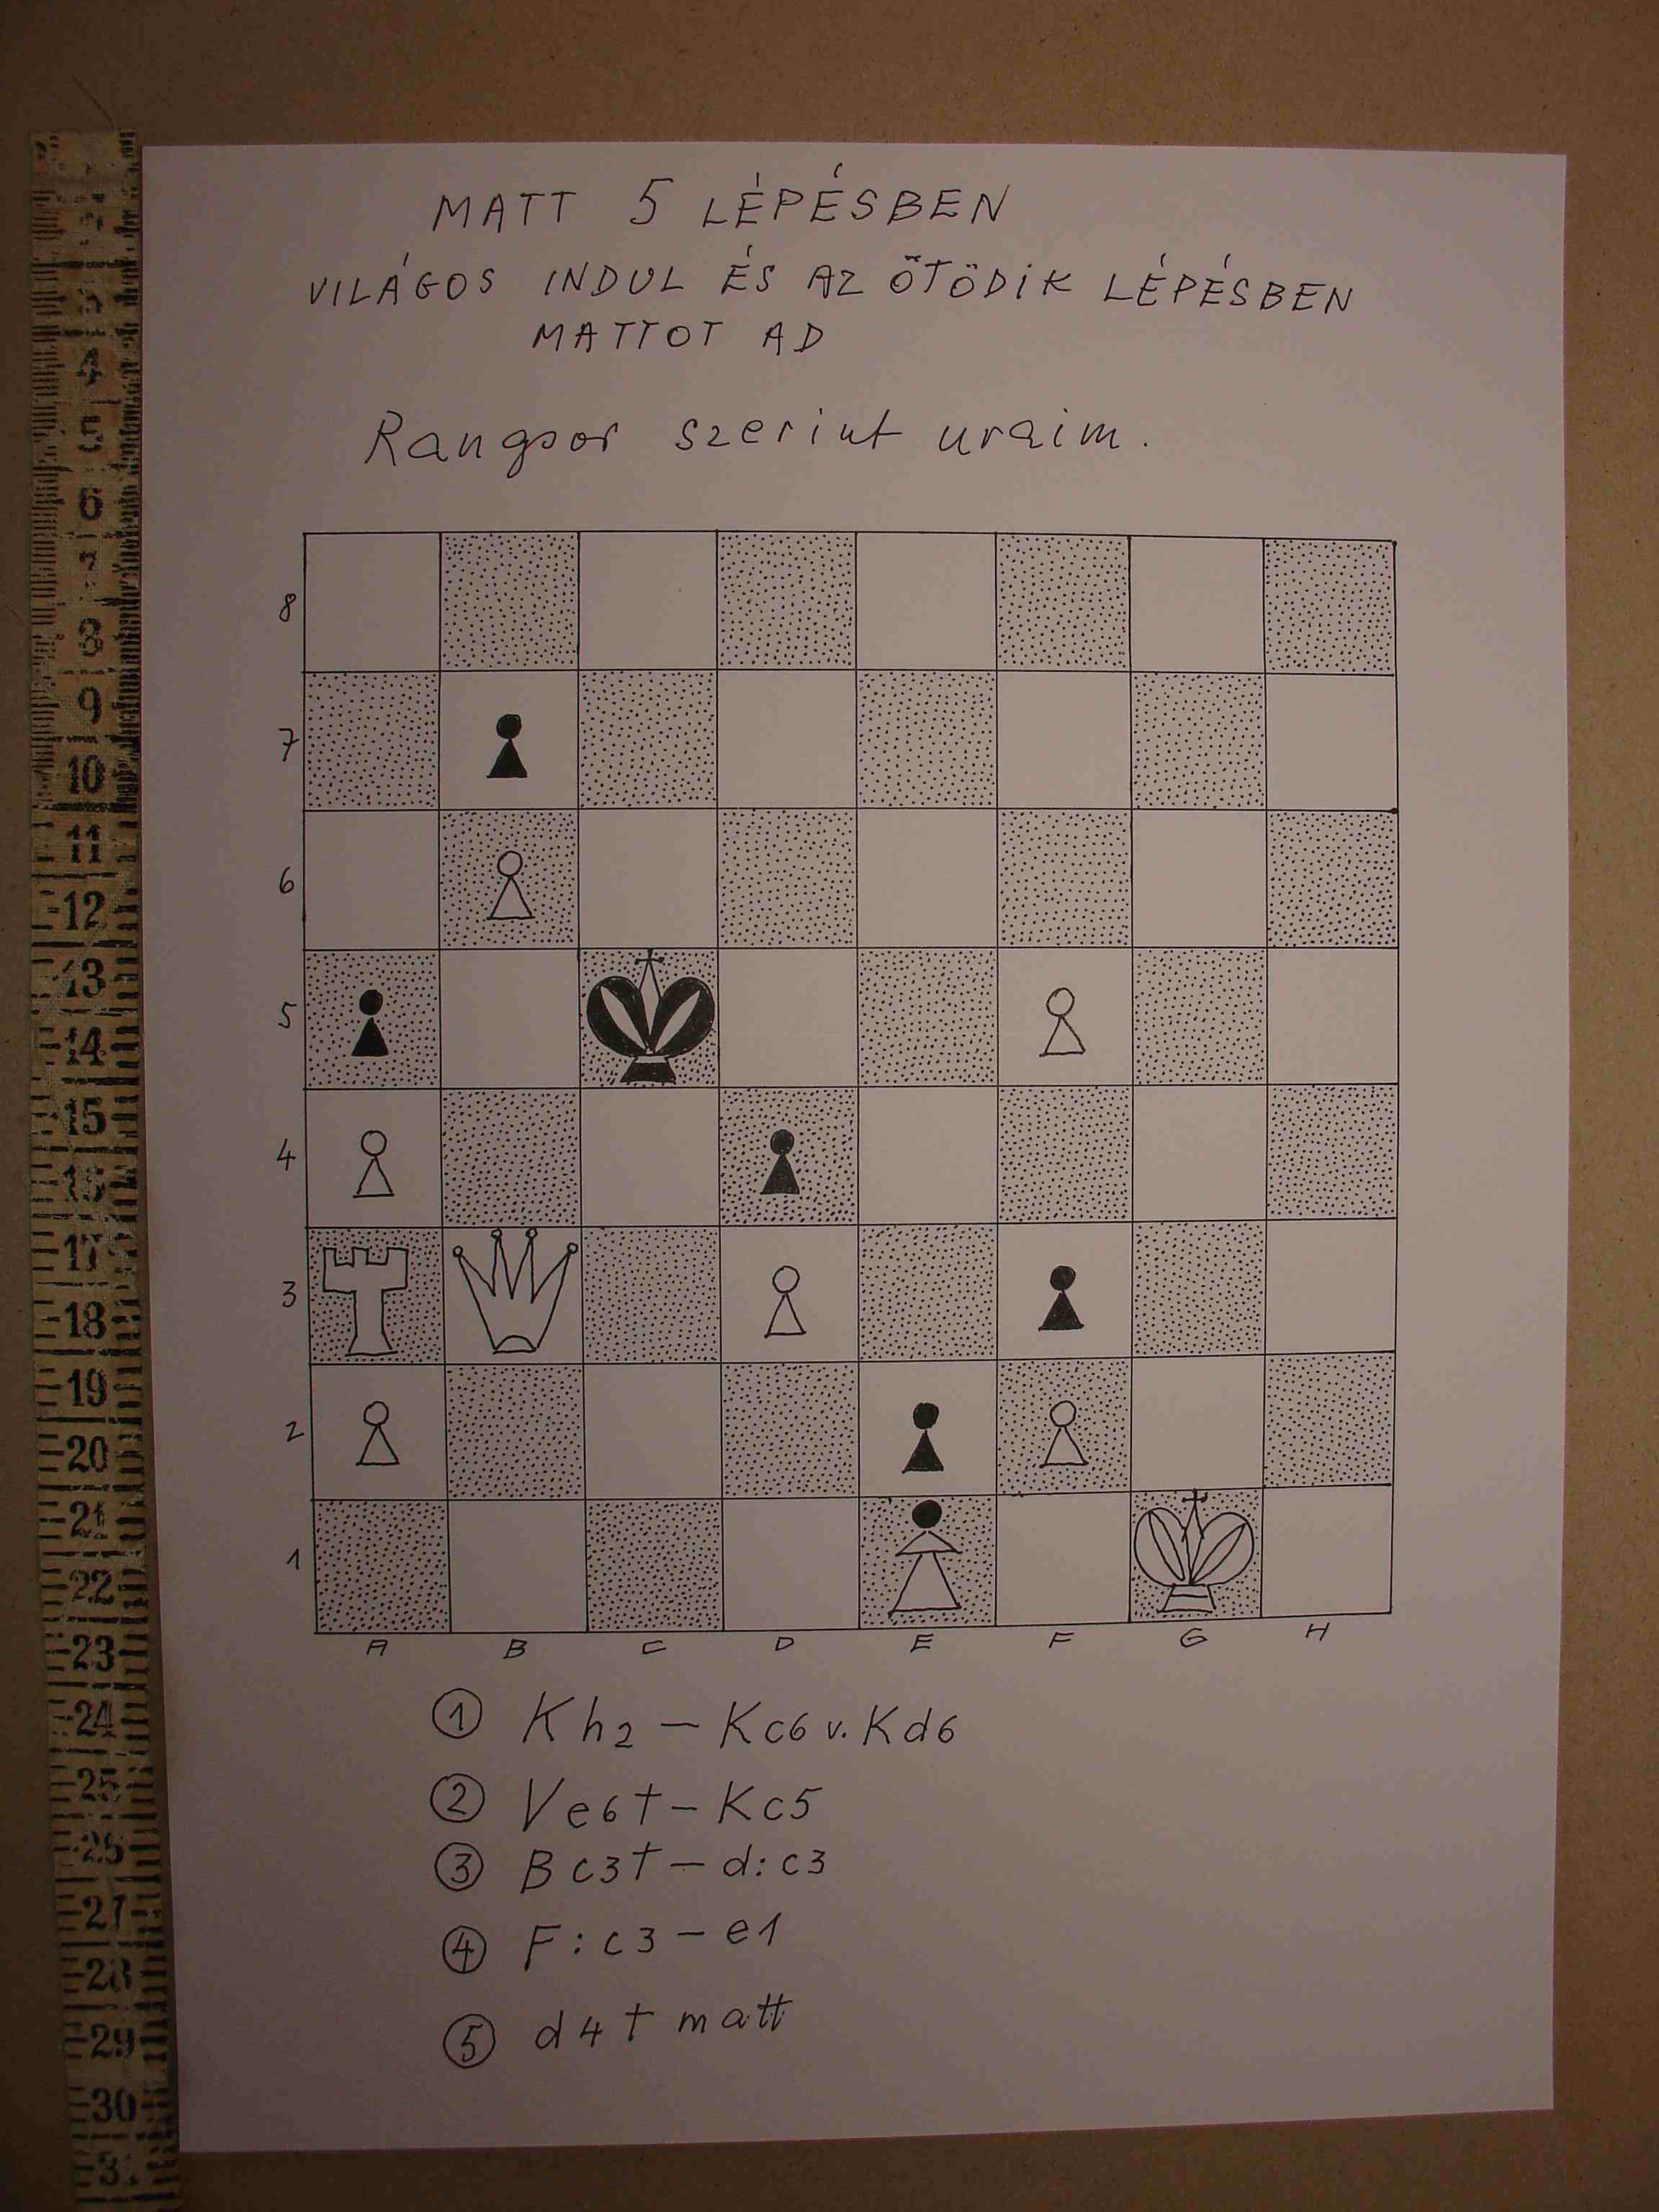 MATT 5 LÉPÉSBEN
VILÁGOS INDUL ÉS AZ ÖTÖDIK LÉPÉSBEN
MATTOT AD
Rangsor szerint uraim.
8
7
6
5
4
3
2
1
A B C D E F G H
① Kh2 – Kc6 v. Kd6
② Ve6† – Kc5
③ Bc3† – d:c3
④ F:c3 – e1
⑤ d4† matt
3
4
5
6
7
8
9
10
11
12
13
14
15
16
17
18
19
20
21
22
23
24
25
26
27
28
29
30